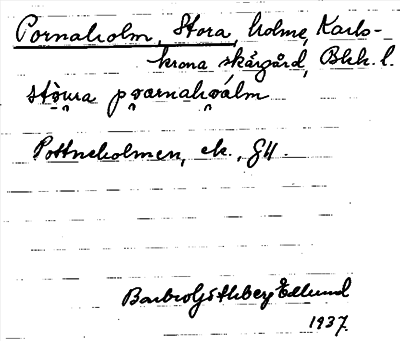 Pornaholm, Stora, holme, Karls-
krona skärgård, Blek. l.
stọ̈ura pọarnahọálm
Pottneholmen, ek., GK.
Barbro Götlberg Edlund
1937.